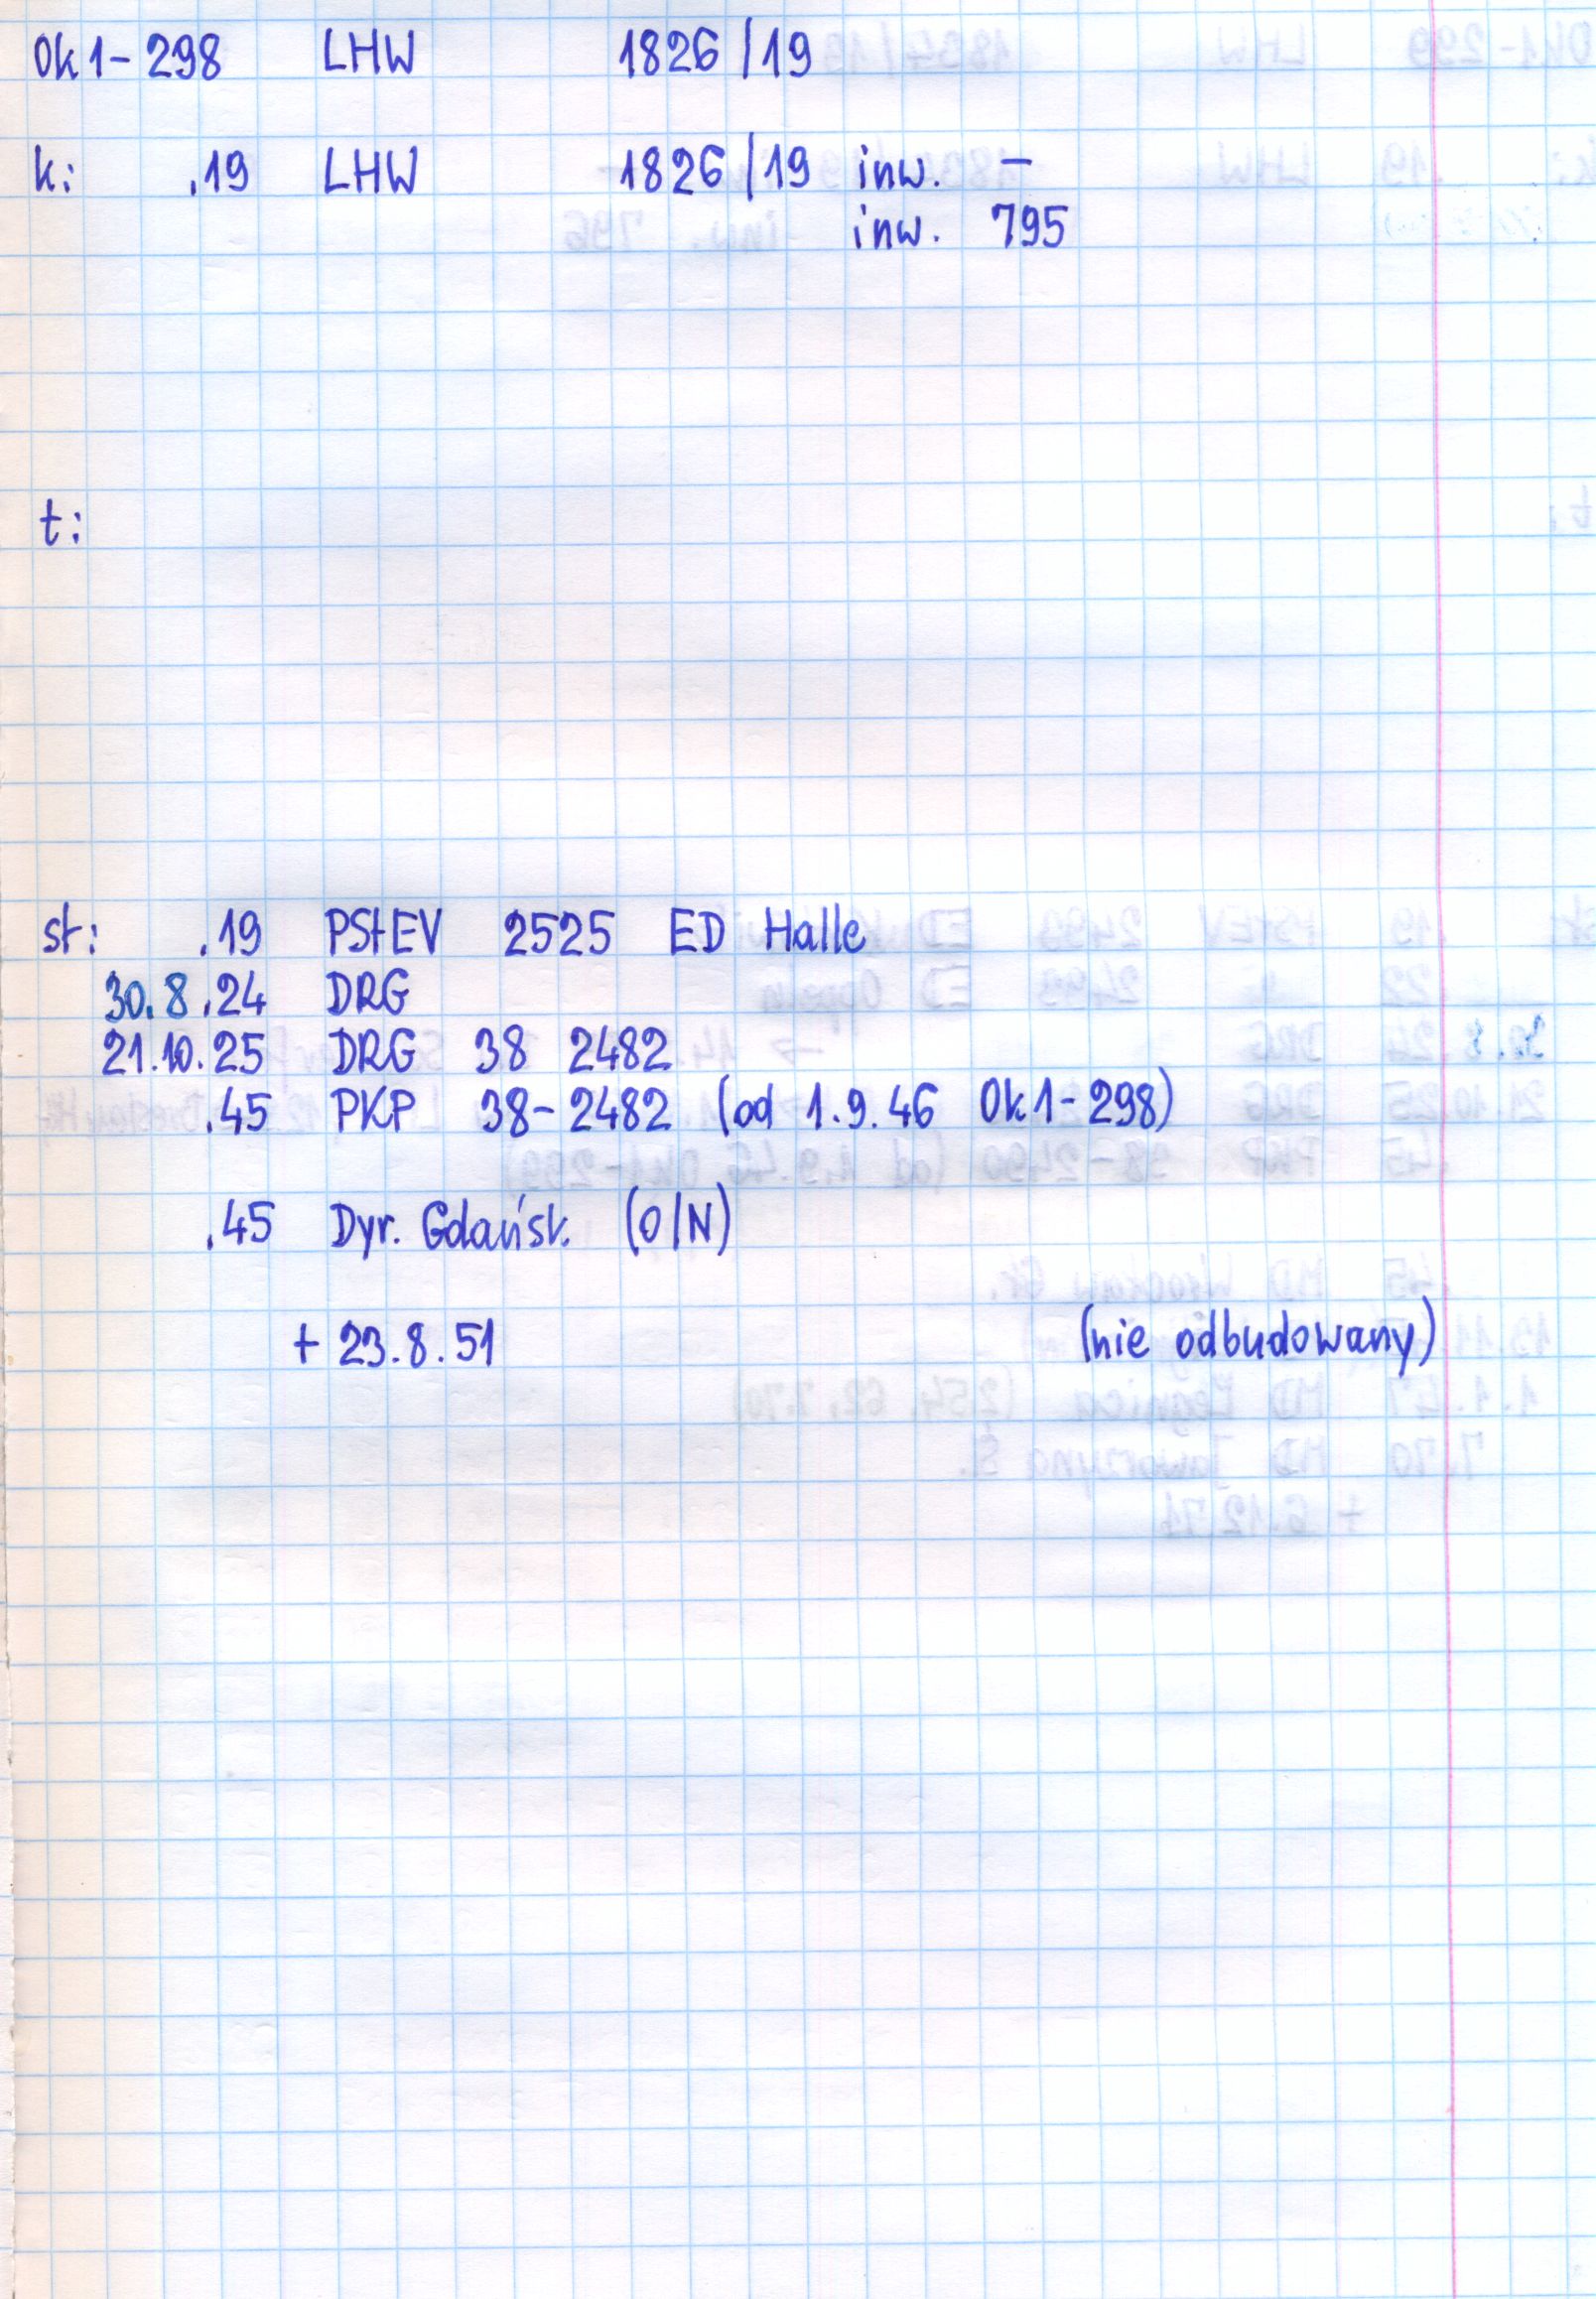 Ok1-298 LHW 1826/19
k: .19 LHW 1826/19 inw. -
inw. 795
t:
st: .19 PStEV 2525 ED Halle
30.8.24 DRG
21.10.25 DRG 38 2482
.45 PKP 38-2482 (od 1.9.46 Ok1-298)
.45 Dyr. Gdańsk (O/N)
+ 23.8.51 (nie odbudowany)